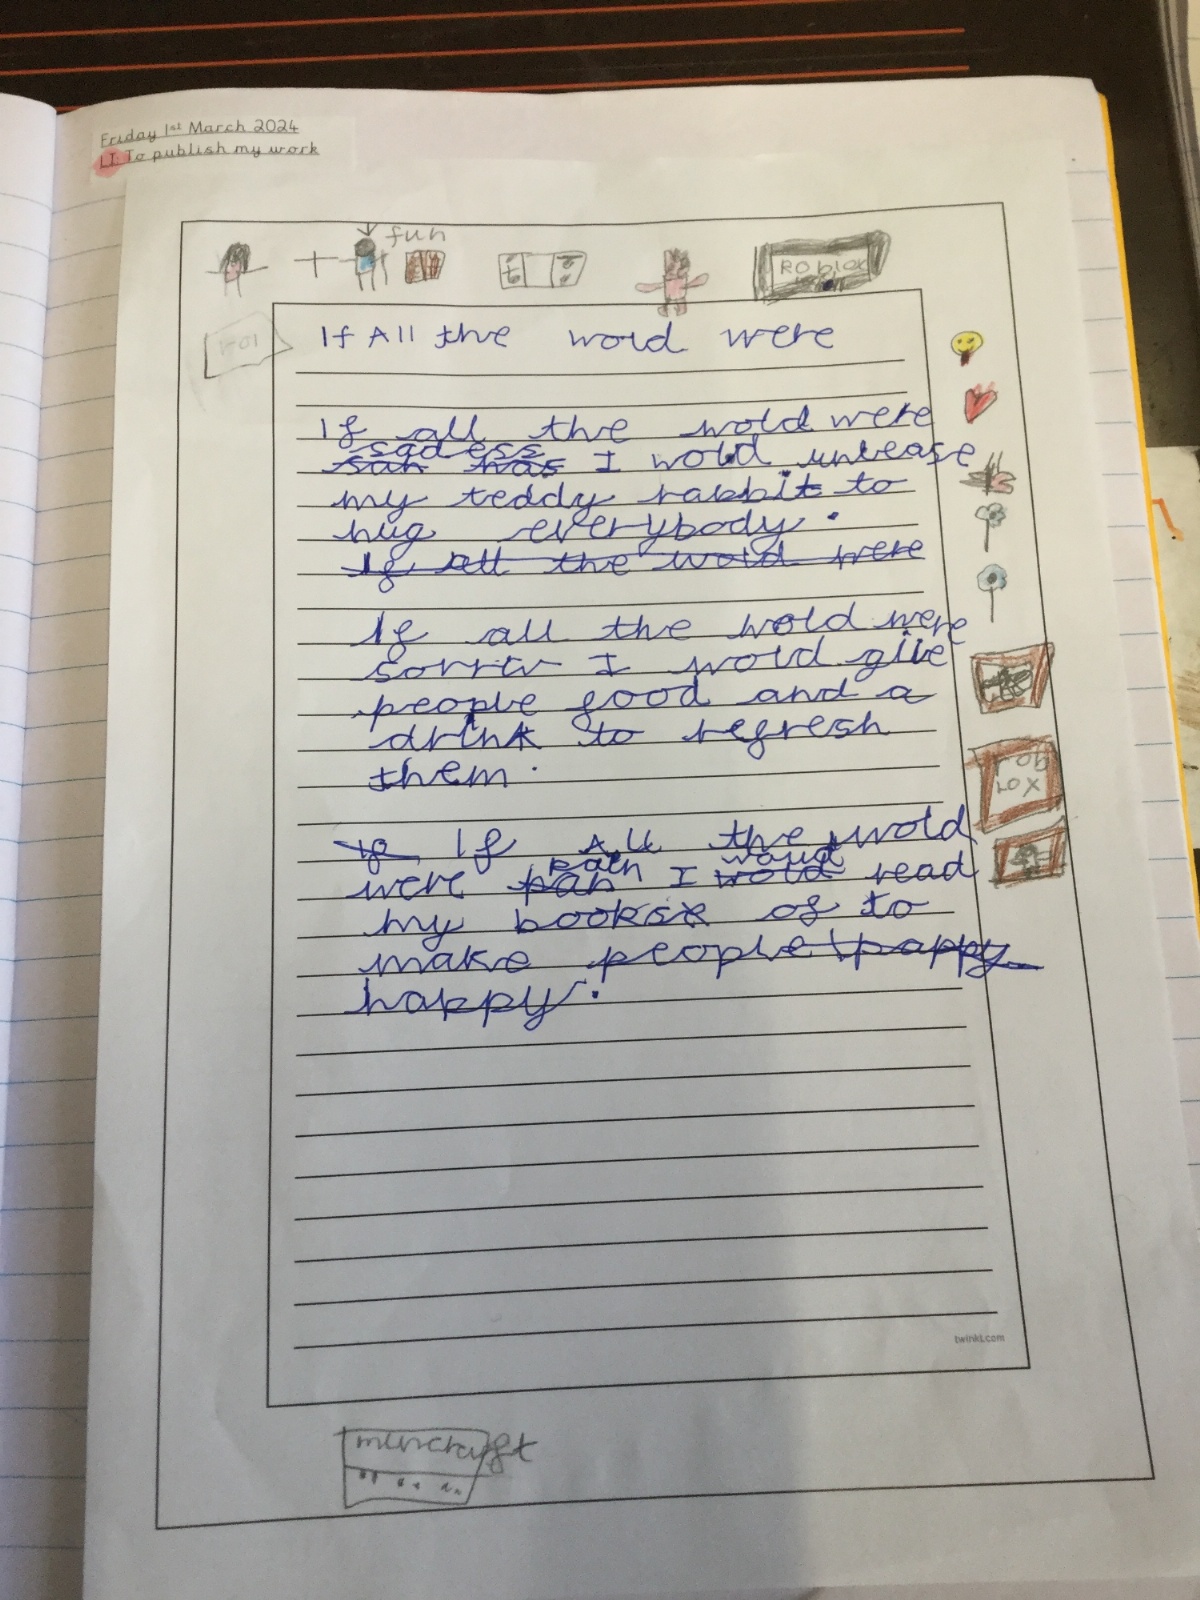 Friday 1st March 2024
LI: To publish my work
fun
Roblox
If All the wold were
If all the wold were
sadess
san was I wold unlease
my teddy rabbit to
hug everybody.
If all the wold were
If all the wold were
sorrw I wold give
people food and a
drink to refresh
them.
If If All the wold
pain woud
were pan I wold read
my books of to
make people pappy
happy.
twinkl.com
mincraft